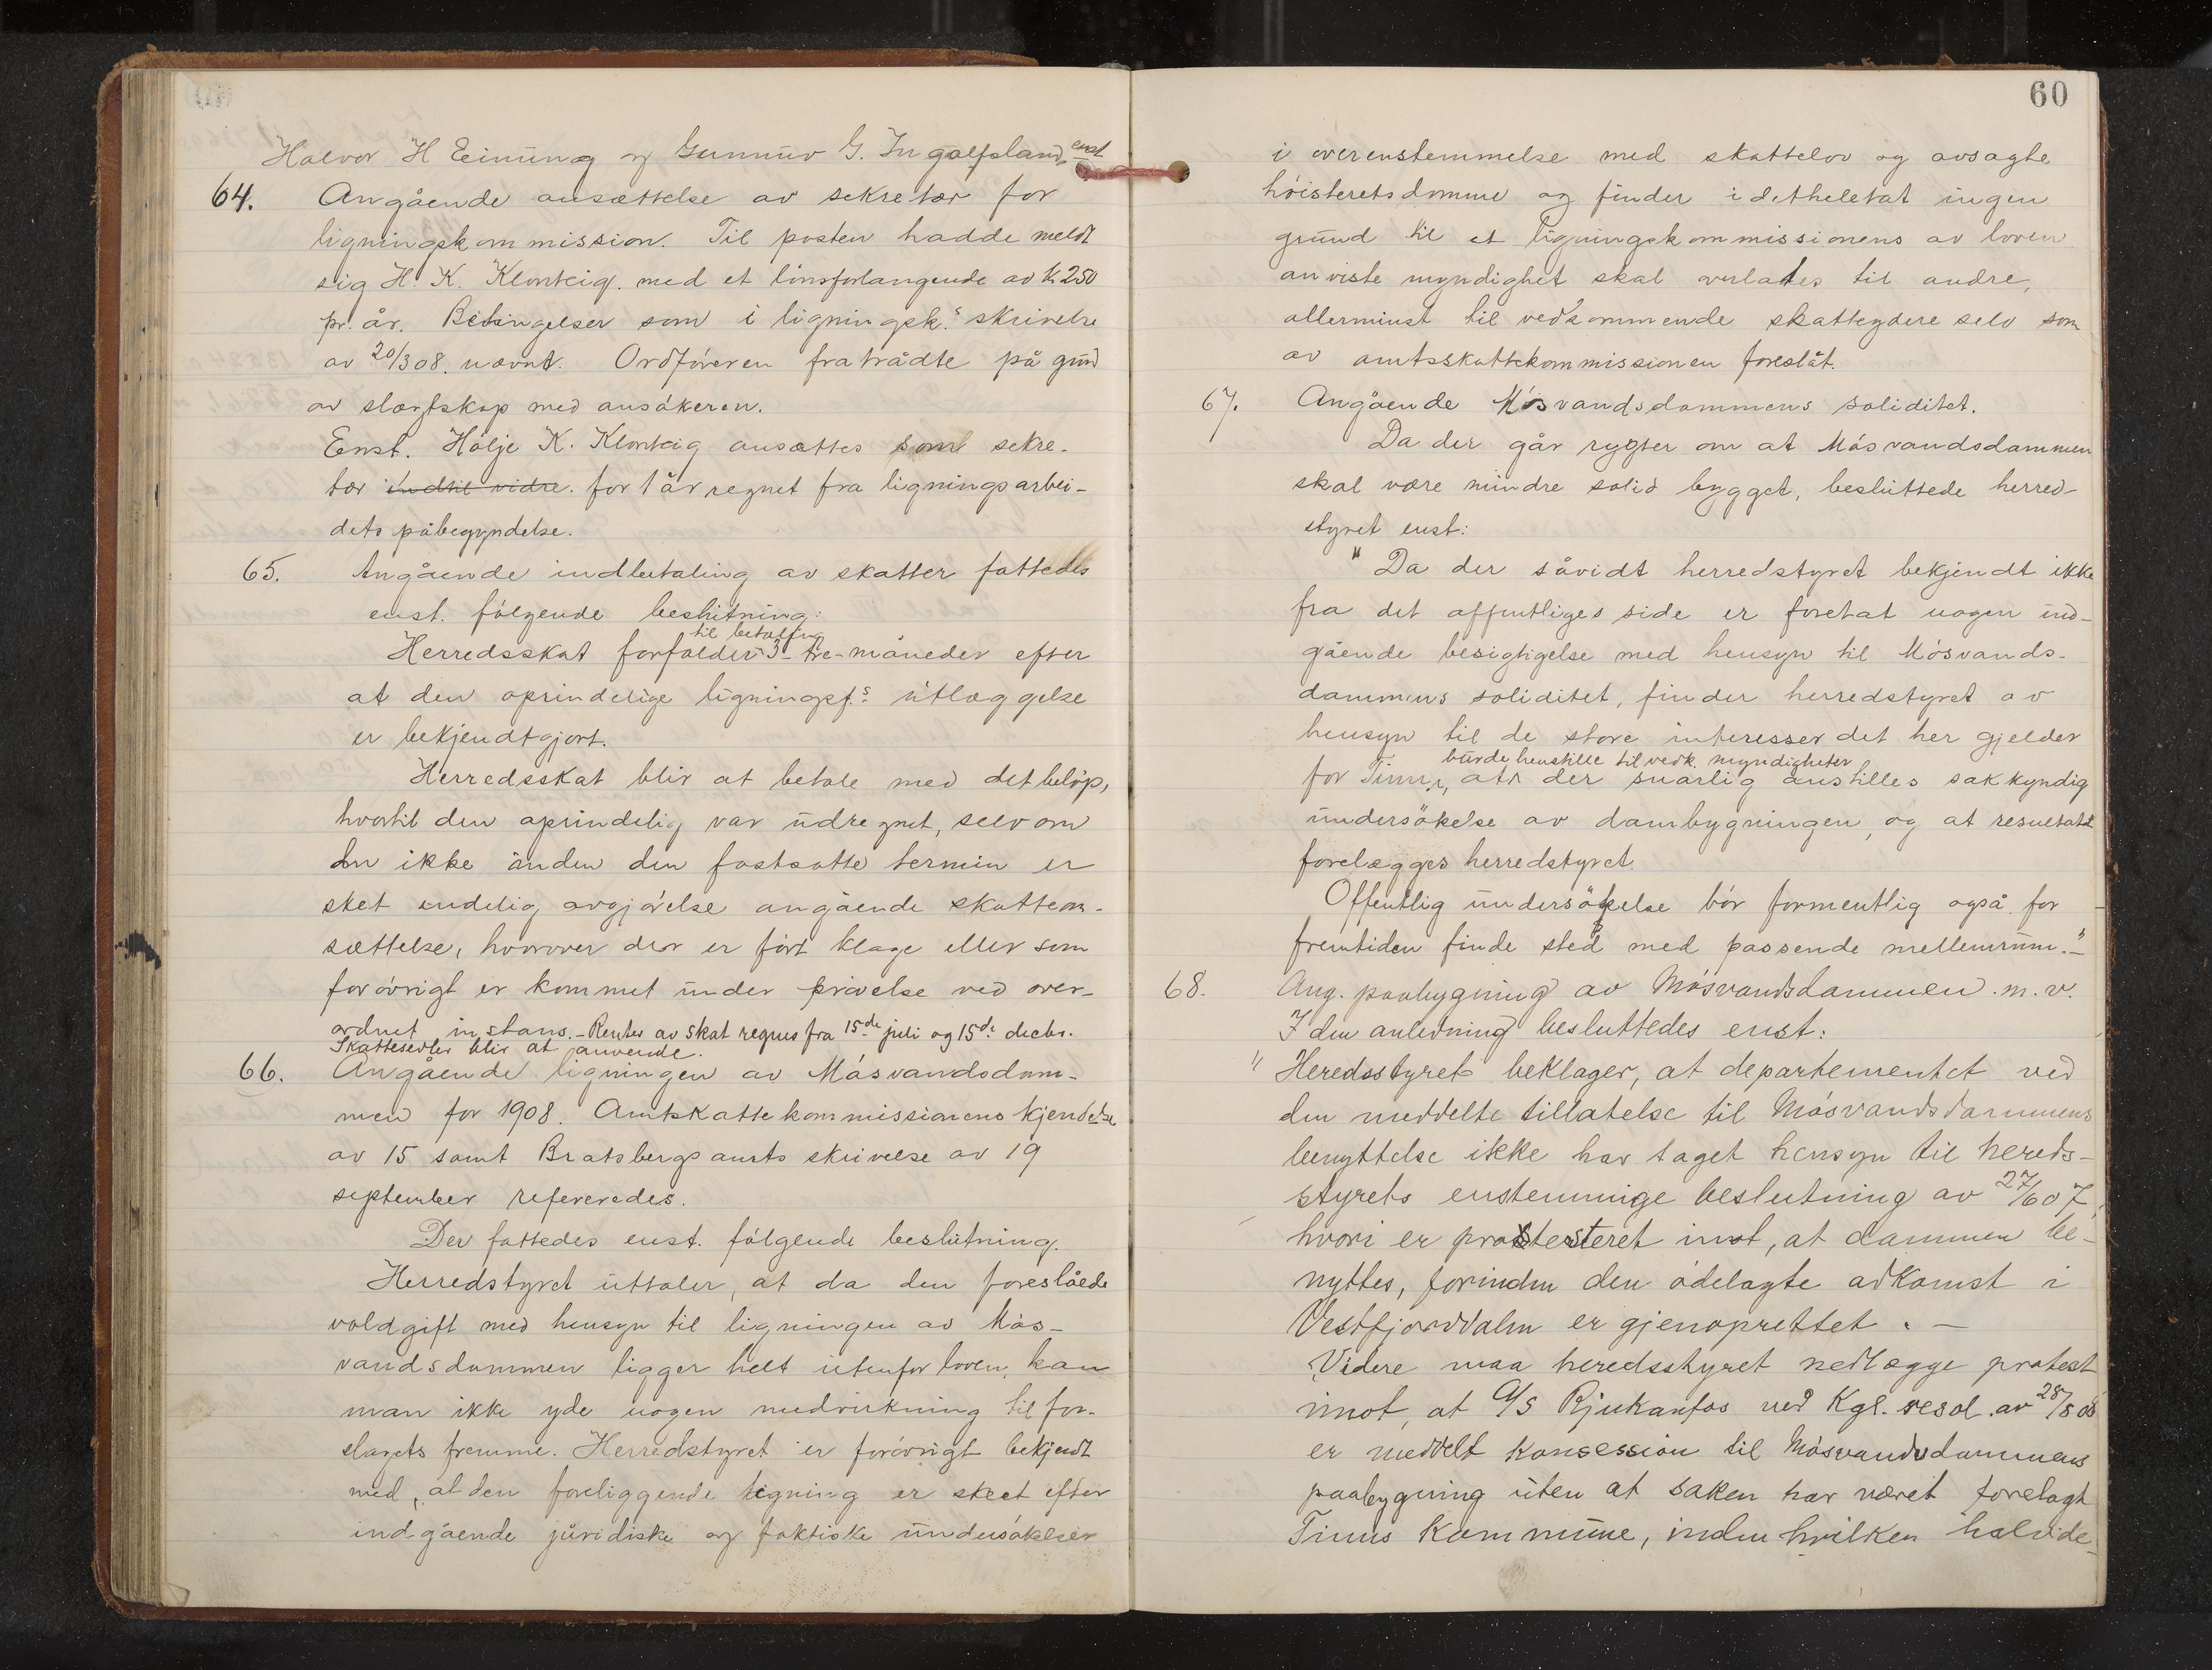 Halvor H Einung og Gunnuv G. Ingolfsland. enst
64. Angående ansættelse av sekretær for
ligningskommission. Til posten hadde meldt
sig H. K. Klonteig. med et lönsforlangende av k 250
pr. år. Betingelser som i ligningsk.s skrivelse
av 20/3 08. nævnt. Ordföreren fratrådte på grund
av slægtskap med ansökeren.
Enst. Hölje K. Klonteig ansættes som sekre-
tær indtil vidre. for 1 år regnet fra ligningsarbei-
dets påbegyndelse.
65. Angående indbetaling av skatter fattedes
enst. fölgende beslutning:
til betaling
Herredsskat forfalder 3- tre-måneder efter
at den oprindelige ligningsf.s utlæggelse
er bekjendtgjort.
Herredsskat blir at betale med det belöp,
hvortil den oprindelig var udregnet, selv om
der ikke inden den fastsatte termin er
sket endelig avgjörelse angående skattean-
sættelse, hvorover der er fört klage eller som
forövrigt er kommet under prövelse ved over-
ordnet instans. - Renter av skat regnes fra 15de juli og 15de decbr.
Skattesedler blir at anvende.
66. Angående ligningen av Mösvandsdam-
men for 1908. Amtskattekommissionens kjendelse
av 15 samt Bratsbergs amts skrivelse av 19
september refereredes.
Der fattedes enst. fölgende beslutning.
Herredstyret uttaler, at da den foreslåede
voldgift med hensyn til ligningen av Mös-
vandsdammen ligger helt utenfor loven, kan
man ikke yde nogen medvirkning til for-
slagets fremme. Herredstyret er forövrigt bekjendt
med, at den foreliggende ligning er skeet efter
indgående juridiske og faktiske undersökelser
60
i overenstemmelse med skattelov og avsagte
höisteretsdomme og finder i detheletat ingen
grund til at ligningskommissionens av loven
anviste myndighet skal overlates til andre,
allerminst til vedkommende skatteydere selv som
av amtsskattekommissionen foreslåt.
67. Angående Mösvandsdammens soliditet.
Da der går rygter om at Mösvandsdammen
skal være mindre solid bygget, besluttede herred-
styret enst:
" Da der såvidt herredstyret bekjendt ikke
fra det offentliges side er foretat nogen ind-
gående besigtigelse med hensyn til Mösvands-
dammens soliditet, finder herredstyret av
hensyn til de store interesser det her gjelder
burde henstille til vedk. myndigheter
for Tinn, at der snarlig anstilles sakkyndig
undersökelse av dambygningen, og at resultatet
forelægges herredstyret.
Offentlig undersökelse bör formentlig også for
fremtiden finde sted med passende mellemrum." -
68. Ang. paabygning av Mösvandsdammen m. v.
I den anledning besluttedes enst:
" Heredsstyret beklager, at departementet ved
den meddelte tillatelse til Mösvandsdammens
benyttelse ikke har taget hensyn til hereds-
styrets enstemmige beslutning av 27/6 07,
hvori er protesteret imot, at dammen be-
nyttes, forinden den ödelagte adkomst i
Vestfjorddalen er gjenoprettet. -
Videre maa heredsstyret nedlægge protest
imot, at A/S Rjukanfos ved Kgl. resol. av 28/8 08
er meddelt konsession til Mösvandsdammens
paabygning uten at saken har været forelagt
Tinns kommune, inden hvilken halvde-